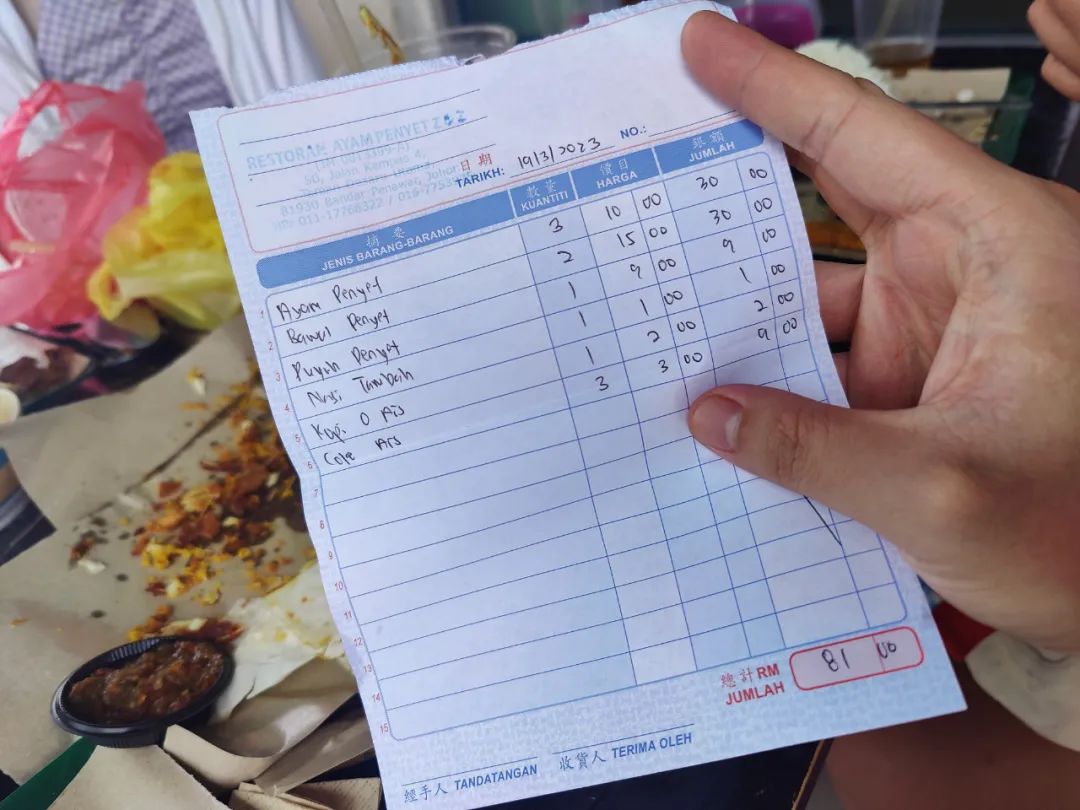 RESTORAN AYAM PENYET Z
50, Jalan Kempas 4,
81930 Bandar Penawar, Johor
HP: 011-17768322 /
日期
TARIKH: 19/3/2023 NO.:
摘要 數量 價目 銀額
JENIS BARANG-BARANG KUANTITI HARGA JUMLAH
1 Ayam Penyet 3 10 00 30 00
2 Bawal Penyet 2 15 00 30 00
3 Puyuh Penyet 1 9 00 9 00
4 Nasi Tambah 1 1 00 1 00
5 Kopi O Ais 1 2 00 2 00
6 Cole Ais 3 3 00 9 00
7
8
9
10
11
12
13
14
15
總計 RM
JUMLAH 81 00
經手人 TANDATANGAN 收貨人 TERIMA OLEH